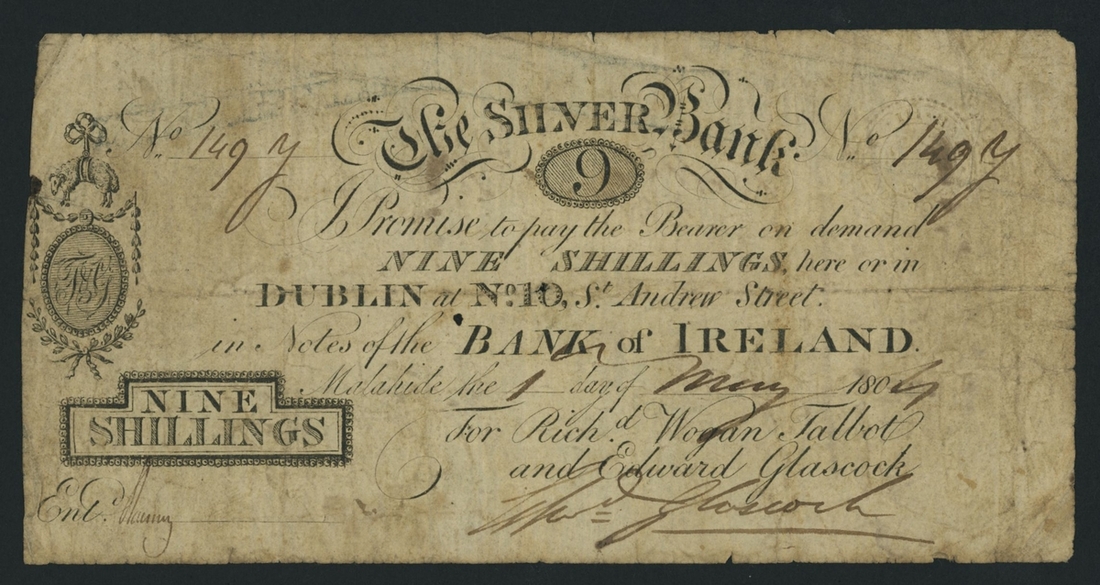 The SILVER Bank
No. 149 y
No. 149 y
9
I Promise to pay the Bearer on demand
NINE SHILLINGS, here or in
DUBLIN at No. 10, St. Andrew Street.
in Notes of the BANK of IRELAND.
T&G
Malahide the 1 day of May 1804
NINE
SHILLINGS
For Richd. Wogan Talbot
and Edward Glascock
Entd.
Glascock